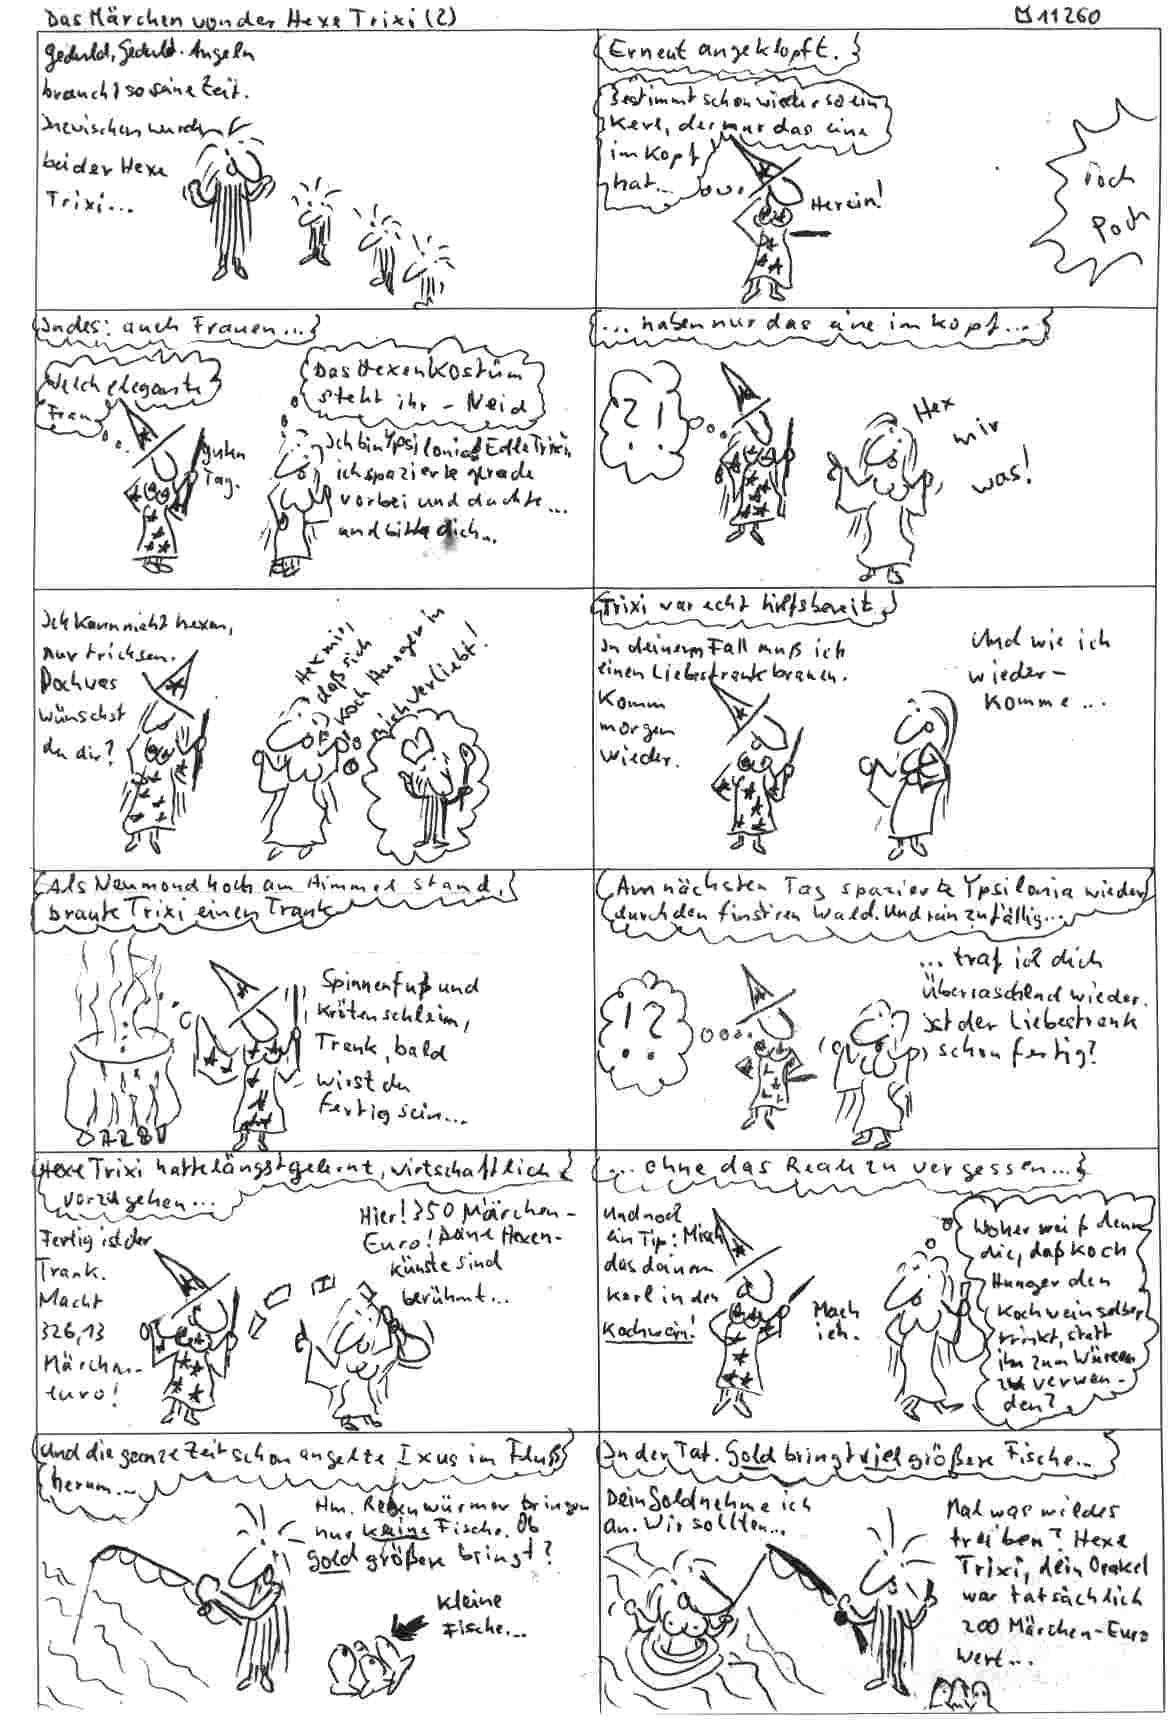 Das Märchen von der Hexe Trixi (2)
11260
Geduld, Geduld. Angeln
braucht so seine Zeit.
Inzwischen wurde
bei der Hexe
Trixi...
Erneut angeklopft.
Bestimmt schon wieder so ein
Kerl, der nur das eine
im Kopf
hat...
Herein!
Poch
Poch
Indes: auch Frauen...
Welch elegante
Frau
guten
Tag.
Das Hexenkostüm
steht ihr - Neid
Ich bin Ypsilonia. Edle Trixi,
ich spazierte gerade
vorbei und dachte...
und bitte dich...
... haben nur das eine im Kopf...
?!
Hex
mir
was!
Ich kann nicht hexen,
nur trichsen.
Doch was
wünschst
du dir?
Hex mir,
daß sich
Koch Hunger in
mich verliebt!
Trixi war echt hilfsbereit.
In deinem Fall muß ich
einen Liebestrank brauen.
Komm
morgen
wieder.
Und wie ich
wieder-
komme...
Als Neumond hoch am Himmel stand,
braute Trixi einen Trank
Spinnenfuß und
Krötenschleim,
Trank, bald
wirst du
fertig sein...
Am nächsten Tag spazierte Ypsilonia wieder
durch den finstren Wald. Und rein zufällig...
!?
... traf ich dich
überraschend wieder.
Ist der Liebestrank
schon fertig?
Hexe Trixi hatte längst gelernt, wirtschaftlich
vorzugehen...
Fertig ist der
Trank.
Macht
326,13
Märchen-
euro!
Hier! 350 Märchen-
Euro! Deine Hexen-
künste sind
berühmt...
... ohne das Reale zu vergessen...
Und noch
ein Tip: Misch
das deinem
Kerl in den
Kochwein!
Mach
ich.
Woher weiß denn
die, daß Koch
Hunger den
Kochwein selber
trinkt, statt
ihn zum Würzen
zu verwen-
den?
Und die ganze Zeit schon angelte Ixus im Fluß
herum...
Hm. Regenwürmer bringen
nur kleine Fische. Ob
Gold größere bringt?
kleine
Fische...
In der Tat. Gold bringt viel größere Fische...
Dein Gold nehme ich
an. Wir sollten...
Mal was wildes
treiben? Hexe
Trixi, dein Orakel
war tatsächlich
200 Märchen-Euro
wert...